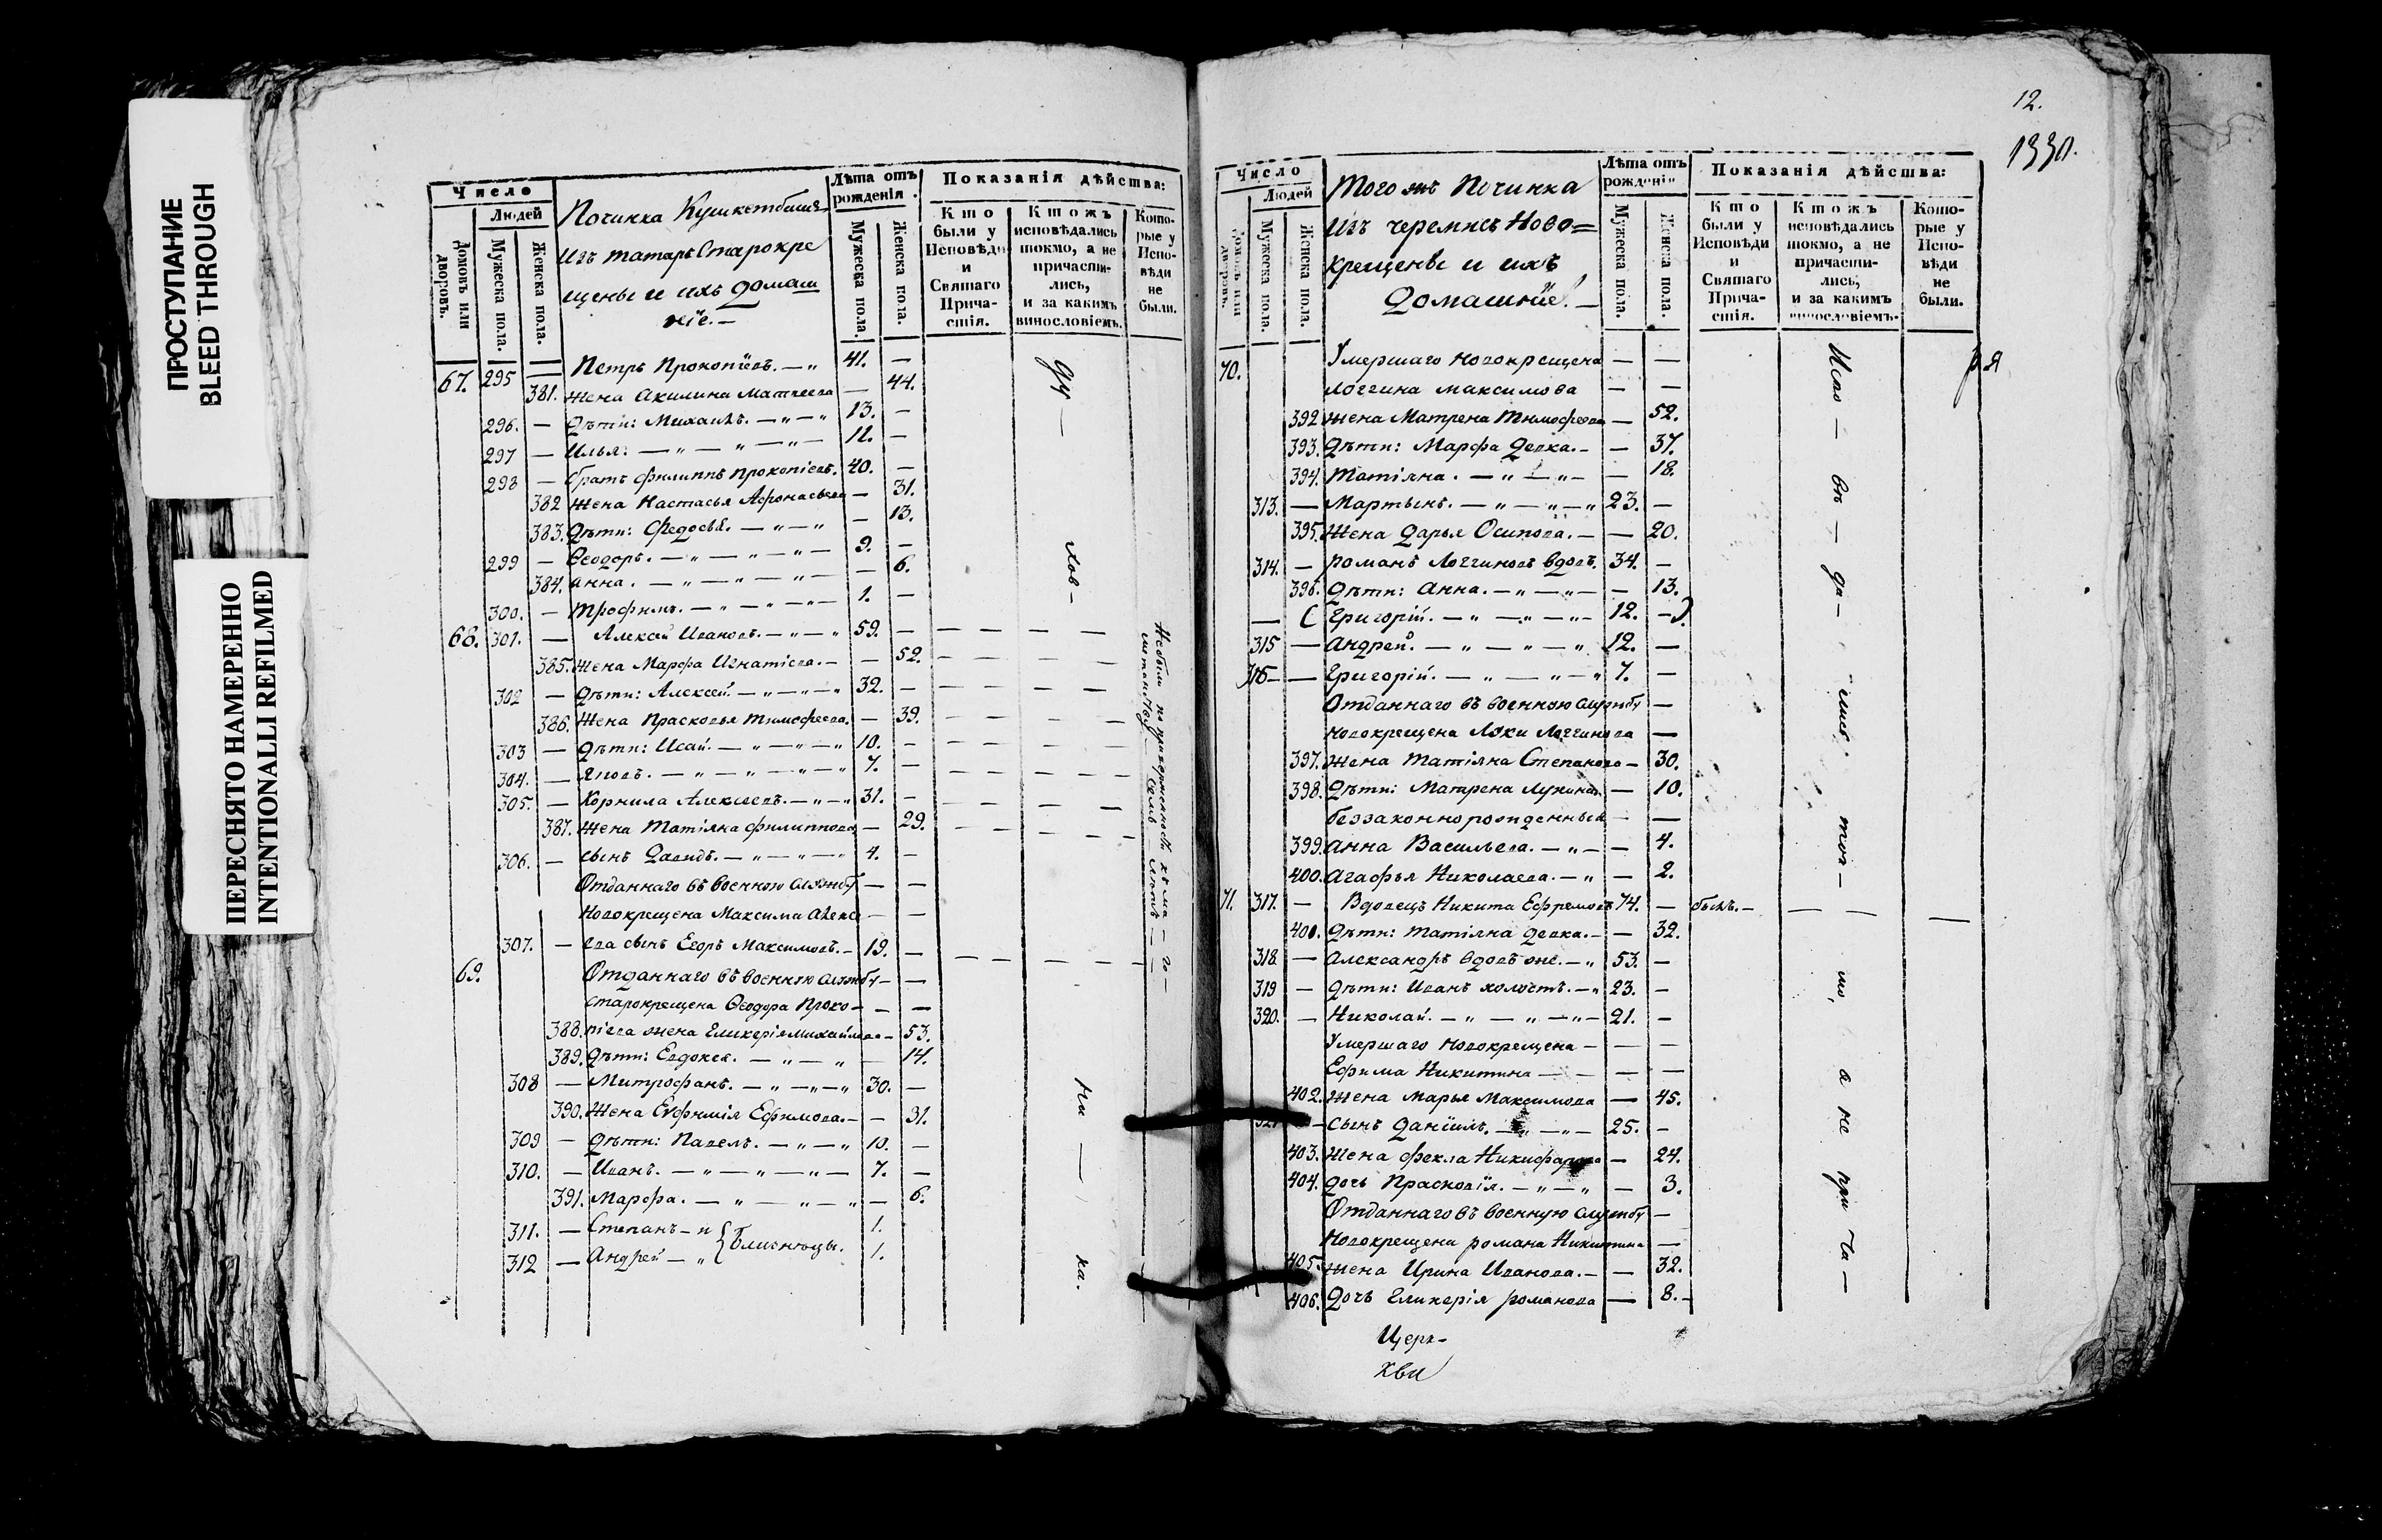 ПРОСТУПАНИЕ
BLEED THROUGH
ПЕРЕСНЯТО НАМЕРЕННО
INTENTIONALLI REFILMED
Число
Людей
Домовъ или дворовъ.
Мужеска пола.
Женска пола.
Починка
изъ татаръ Старокре
щены и ихъ домаш
нїе. —
Лѣта отъ рожденія.
Мужеска пола.
Женска пола.
Показанія дѣйства:
Кто были у Исповѣди и Святаго Причастія.
Ктожъ исповѣдались токмо, а не причастились, и за какимъ винословіемъ.
Которые у Исповѣди не были.
67. 295 — Петръ Прокопїевъ. — „ 41. —
381. жена Акилина Матвеева — 44.
296. — дѣти: Михаилъ. — „ — „ 13. —
297 — Илья: — „ — „ — „ — 11. —
298 — братъ Филиппъ Прокопіевъ. 40. —
382 жена Настасья Афонасьева — 31.
383. дѣти: Федосья. — „ — „ — 13.
299 — Ѳеодоръ. — „ — „ — „ — 9. —
384. Анна. — „ — „ — „ — — 6.
300. — Трофимъ. — „ — „ — „ — 1. —
68. 301. — Алексей Ивановъ. — „ — „ 59. —
385. жена Марфа Игнатіева. — — 52.
302 — дѣти: Алексей. — „ — „ — „ 32. —
386. жена Прасковья Тимофеева. — 39.
303 — дѣти: Исай. — „ — „ — „ 10. —
304. — Яковъ. — „ — „ — „ — „ 7. —
305. — Корнила Алексеевъ. — „ — „ 31. —
387. жена Татіяна Филиппова — 29.
306. — сынъ Давидъ. — „ — „ — „ 4. —
Отданнаго въ военною службу — —
Новокрещена Максима Алексе — —
307. — ева сынъ Егоръ Максимовъ. — 19. —
69. Отданнаго въ военною службу — —
старокрещена Ѳеодора Проко — — —
388. піева жена Гликерія Михайлова — 53.
389. дѣти: Евдокея. — „ — „ — 14.
308 — Митрофанъ. — „ — „ — „ 30. —
390. жена Евфимія Ефимова. — — 31.
309 — дѣти: Павелъ. — „ — „ 10. —
310. — Иванъ. — „ — „ — „ — 7. —
391. Марфа. — „ — „ — „ — 6.
311. — Степанъ — и 1.
близнецы.
312 — Андрей — „ 1.
ду —
хов —
ни —
ка.
12.
Число
Людей
Мужеска пола.
Женска пола.
Того жъ Починка
изъ черемисъ Ново=
крещены и ихъ
домашнїе. —
Лѣта отъ рожденія
Мужеска пола.
Женска пола.
Показанія дѣйства:
Кто были у Исповѣди и Святаго Причастія.
Ктожъ исповѣдались токмо, а не причастились, и за какимъ винословіемъ.
Которые у Исповѣди не были.
70. Умершаго новокрещена — —
Логгина Максимова — —
392 жена Матрена Тимофеева — 52.
393. дѣти: Марфа девка. — — 37.
394. Татіяна. — „ — „ — — 18.
313. — Мартынъ. — „ — „ — „ 23. —
395. жена Дарья Осипова. — — 20.
314. — Романъ Логгиновъ вдовъ. 34. —
396. дѣти: Анна. — „ — „ — — 13.
— ( Григорій. — „ — „ — „ — 12. — ).
315 — Андрей. — „ — „ — „ 12. —
316 — — Григорій. — „ — „ — „ 7. —
Отданнаго въ военною службу —
новокрещена Луки Логгинова —
397. жена Татіяна Степанова — 30.
398. дѣти: Матрена Лукина — 10.
беззаконнорожденныя — —
399. Анна Васильева. — „ — — 4.
400. Агафья Николаева. — „ — 2.
71. 317. — Вдовецъ Никита Ефремовъ 74. — былъ. —
401. дѣти: Татіяна девка. — — 32.
318. — Александръ вдовъ же. — „ 53. —
319 — дѣти: Иванъ холостъ. — „ 23. —
320. — Николай. — „ — „ — „ — 21. —
Умершаго новокрещена — — —
Ефима Никитина — — — —
402. жена Марья Максимова — 45.
321 — сынъ Данїилъ. — „ — „ — 25. —
403. жена Фекла Никифорова — 24.
404. дочь Прасковїя. — „ — „ — 3.
Отданнаго въ военную службу —
новокрещена Романа Никитина —
405. жена Ирина Иванова. — — 32.
406. дочь Гликерія Романова — 8. —
Испо — вѣ — да —
лись
ток —
мо,
а не
при ча —
Церк-
кви